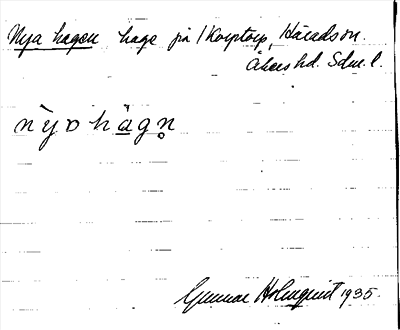 Nya hagen hage på 1 Korptorp, Häradson.
Åkers hd. Sdm. l.
nỳo hàgn̥
Gunnar Holmquist 1935.